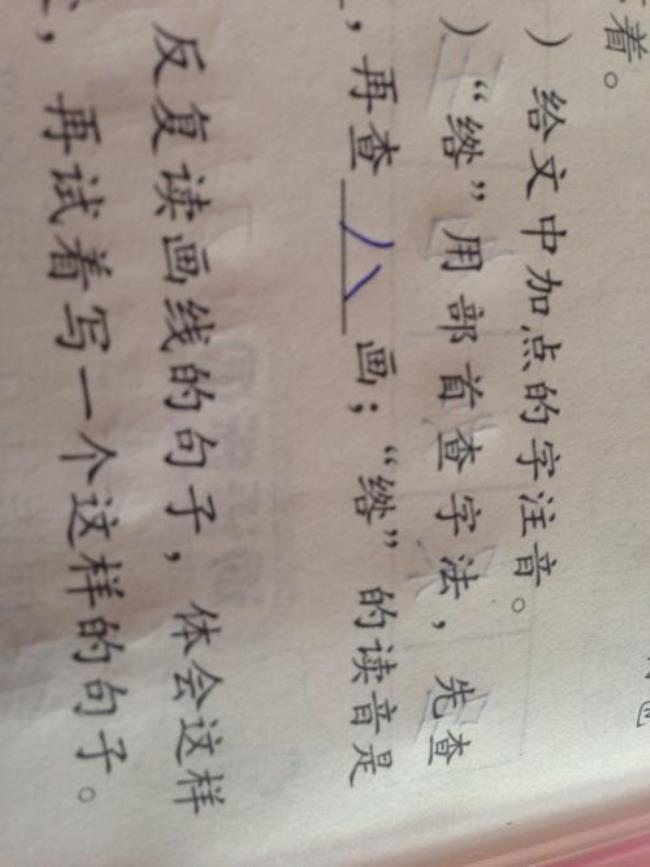 着。
）给文中加点的字注音。
）“绺”用部首查字法，先查
，再查八画；“绺”的读音是
反复读画线的句子，体会这样
，再试着写一个这样的句子。